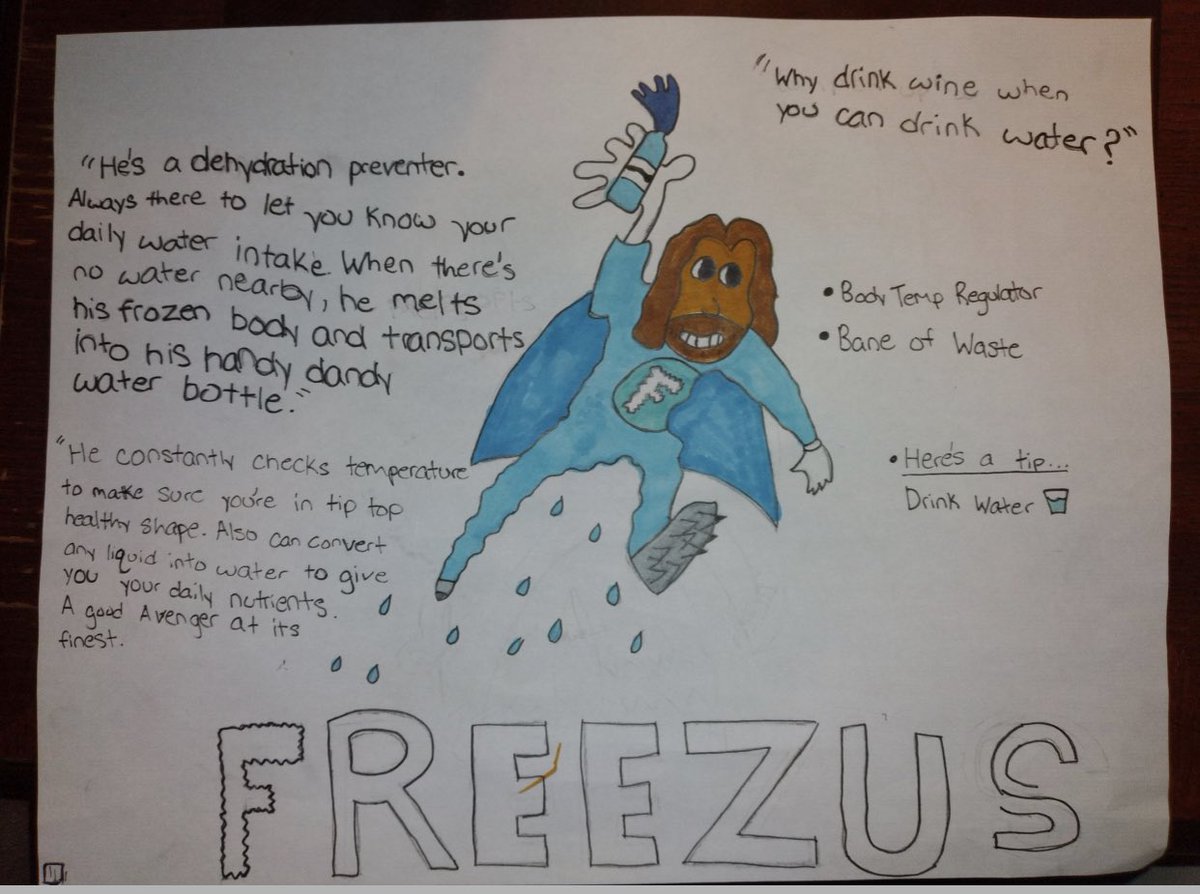 "Why drink wine when
you can drink water?"
"He's a dehydration preventer.
Always there to let you know your
daily water intake. When there's
no water nearby, he melts
his frozen body and transports
into his handy dandy
water bottle."
• Body Temp Regulator
• Bane of Waste
"He constantly checks temperature
to make sure you're in tip top
healthy shape. Also can convert
any liquid into water to give
you your daily nutrients.
A good Avenger at its
finest.
• Here's a tip...
Drink Water
F
FREEZUS